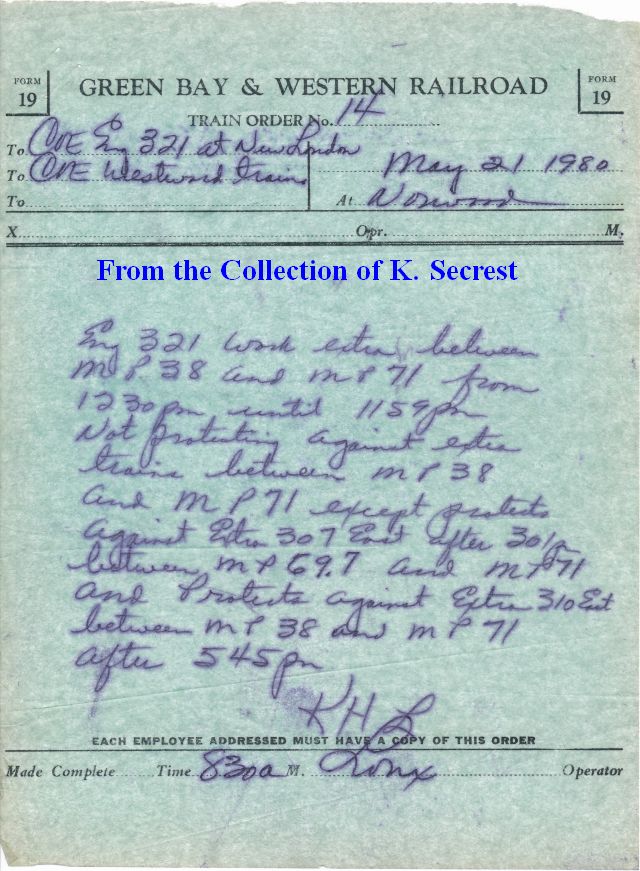 FORM 19
GREEN BAY & WESTERN RAILROAD
FORM 19
TRAIN ORDER No. 14
To C&E Eng 321 at New London
To C&E Westward trains May 21 1980
To At Norwood
X Opr. M.
From the Collection of K. Secrest
Eng 321 work extra between
MP 38 and MP 71 from
1230pm until 1159pm
Not protecting against extra
trains between MP 38
and MP 71 except protects
against Extra 307 East after 301p
between MP 69.7 and MP 71
and Protects against Extra 310 East
between MP 38 and MP 71
after 545pm
KHL
EACH EMPLOYEE ADDRESSED MUST HAVE A COPY OF THIS ORDER
Made Complete Time 830a M. Operator